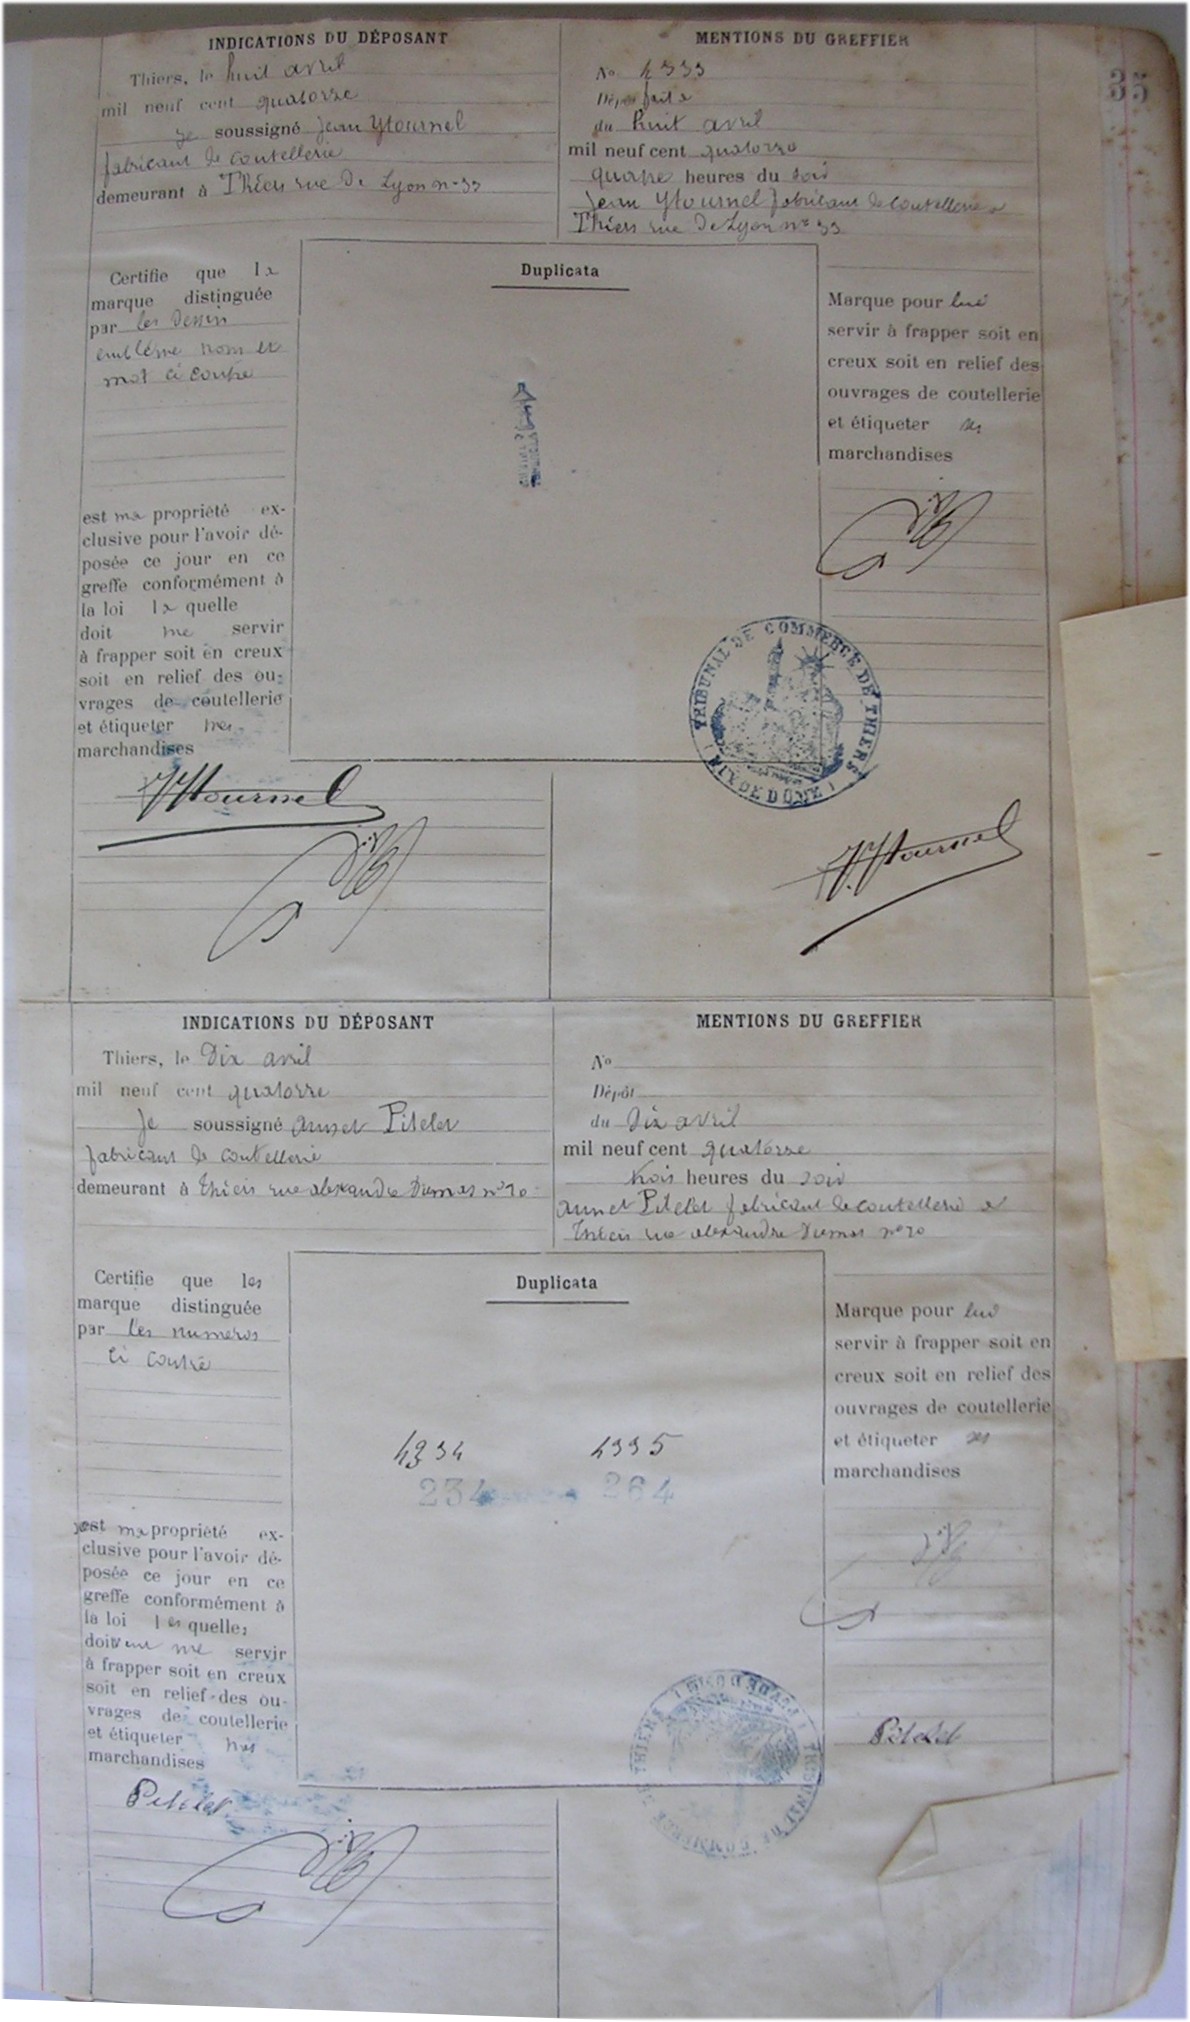 35
INDICATIONS DU DÉPOSANT
Thiers, le huit avril
mil neuf cent quatorze
je soussigné Jean Ytournel
fabricant de coutellerie
demeurant à Thiers rue de Lyon n° 33
MENTIONS DU GREFFIER
No 4333
Dépôt fait
du huit avril
mil neuf cent quatorze
quatre heures du soir
Jean Ytournel fabricant de coutellerie à
Thiers rue de Lyon n° 33
Certifie que la
marque distinguée
par les dessin
emblème nom et
mot ci contre
est ma propriété ex-
clusive pour l'avoir dé-
posée ce jour en ce
greffe conformément à
la loi la quelle
doit me servir
à frapper soit en creux
soit en relief des ou-
vrages de coutellerie
et étiqueter mes
marchandises
Duplicata
Marque pour lui
servir à frapper soit en
creux soit en relief des
ouvrages de coutellerie
et étiqueter ses
marchandises
TRIBUNAL DE COMMERCE DE THIERS
(PUY DE DOME)
JYtournel
JYtournel
INDICATIONS DU DÉPOSANT
Thiers, le Dix avril
mil neuf cent quatorze
Je soussigné Annet Pitelet
fabricant de coutellerie
demeurant à Thiers rue alexandre Dumas n° 10
MENTIONS DU GREFFIER
No
Dépôt
du Dix avril
mil neuf cent quatorze
trois heures du soir
Annet Pitelet fabricant de coutellerie à
Thiers rue alexandre Dumas n° 10
Certifie que les
marque distinguée
par les numeros
ci contre
est ma propriété ex-
clusive pour l'avoir dé-
posée ce jour en ce
greffe conformément à
la loi les quelles
doivent me servir
à frapper soit en creux
soit en relief des ou-
vrages de coutellerie
et étiqueter mes
marchandises
Duplicata
4334 4335
234 264
Marque pour lui
servir à frapper soit en
creux soit en relief des
ouvrages de coutellerie
et étiqueter ses
marchandises
Pitelet
TRIBUNAL DE COMMERCE DE THIERS
(PUY DE DOME)
Pitelet